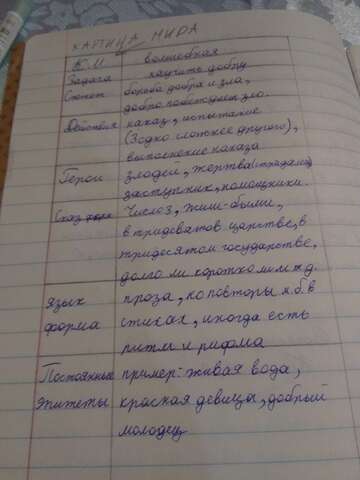 КАРТИНА МИРА
К.М волшебная
Задача научить добру
Сюжет борьба добра и зла,
добро победит зло.
Действия наказ, испытание
(Задко сложнее другого),
выполнение наказа
Герои злодеи, жертва (страдалец)
заступник, помощники.
Сказ число 3, жили-были,
в тридевятом царстве, в
тридесятом государстве,
долго ли коротко ли и т д.
язык проза, но повторы я.б.в
форма стихах, иногда есть
ритм и рифма
Постоянные пример: живая вода,
эпитеты красная девицы, добрый
молодец